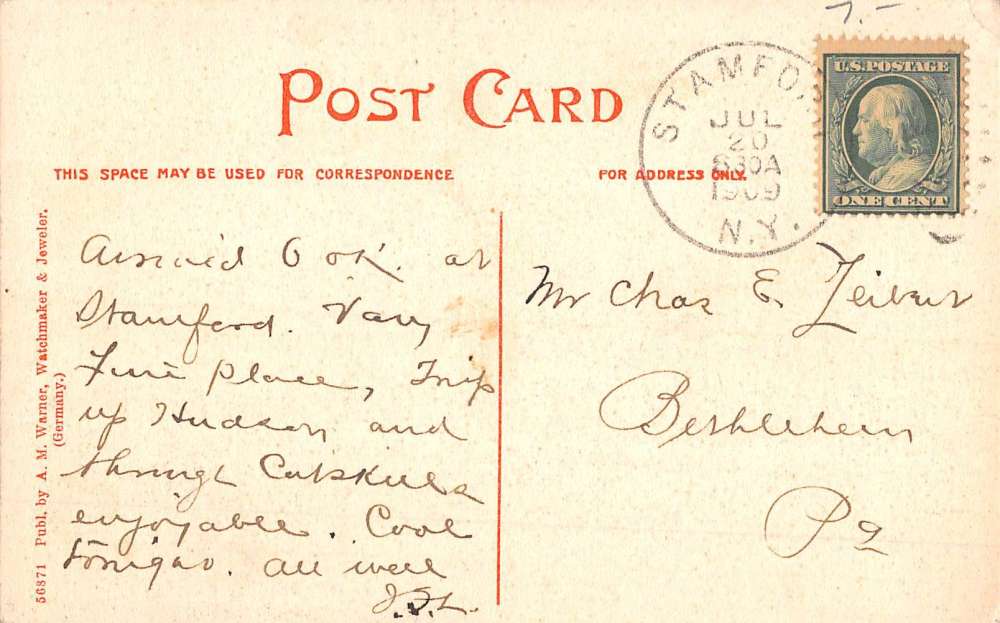 7.-
POST CARD
STAMFORD
JUL
20
830A
1909
N.Y.
U.S. POSTAGE
ONE CENT
THIS SPACE MAY BE USED FOR CORRESPONDENCE
FOR ADDRESS ONLY.
56871 Publ. by A. M. Warner, Watchmaker & Jeweler.
(Germany.)
Arrived O OK. at
Stamford. Very
Fine place, Trip
up Hudson and
through Catskills
enjoyable. Cool
tonight. All well
Mr Chas E.
Bethlehem
Pa